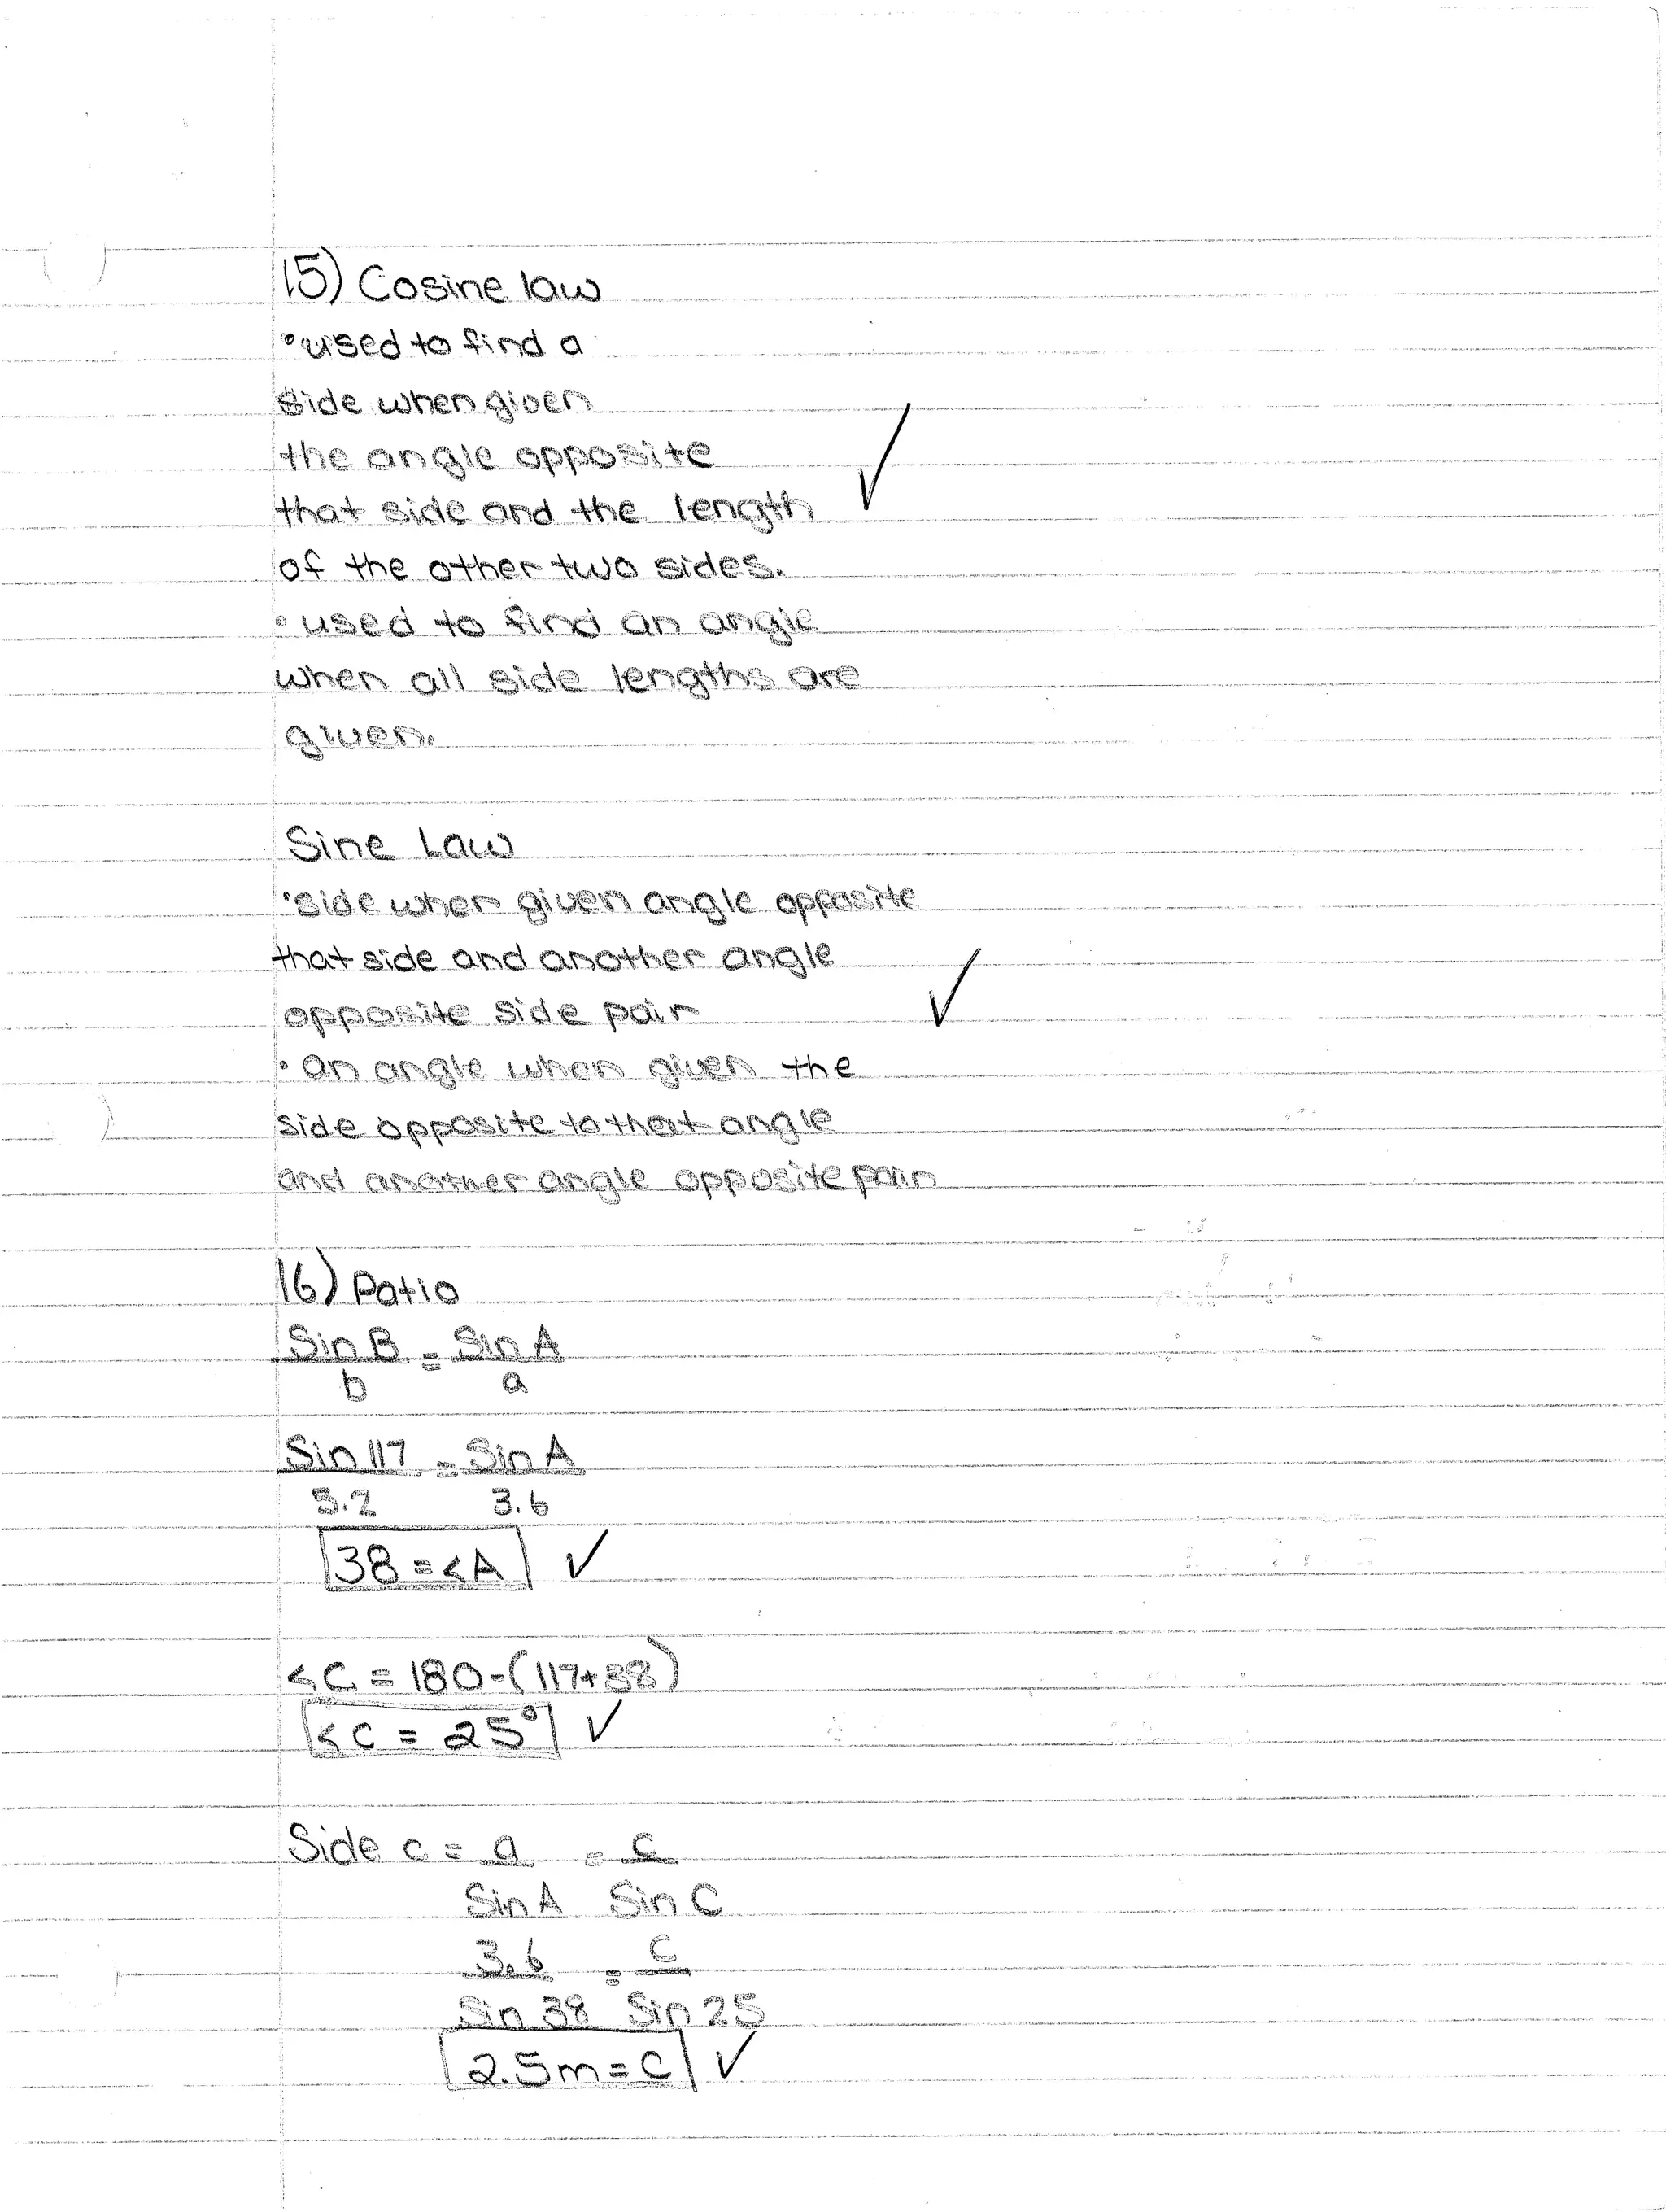 15) Cosine law
• used to find a
side when given
the angle opposite
that side and the length
of the other two sides.
• used to find an angle
when all side lengths are
given.
Sine Law
• side when given angle opposite
that side and another angle
opposite side pair
• an angle when given the
side opposite to that angle
and another angle opposite pair
16) Patio
Sin B = Sin A
b a
Sin 117 = Sin A
5.2 3.6
38 = <A ✓
<C = 180-(117+38)
<C = 25° ✓
Side c = a = c
Sin A Sin C
3.6 = c
Sin 38 Sin 25
2.5m = C ✓